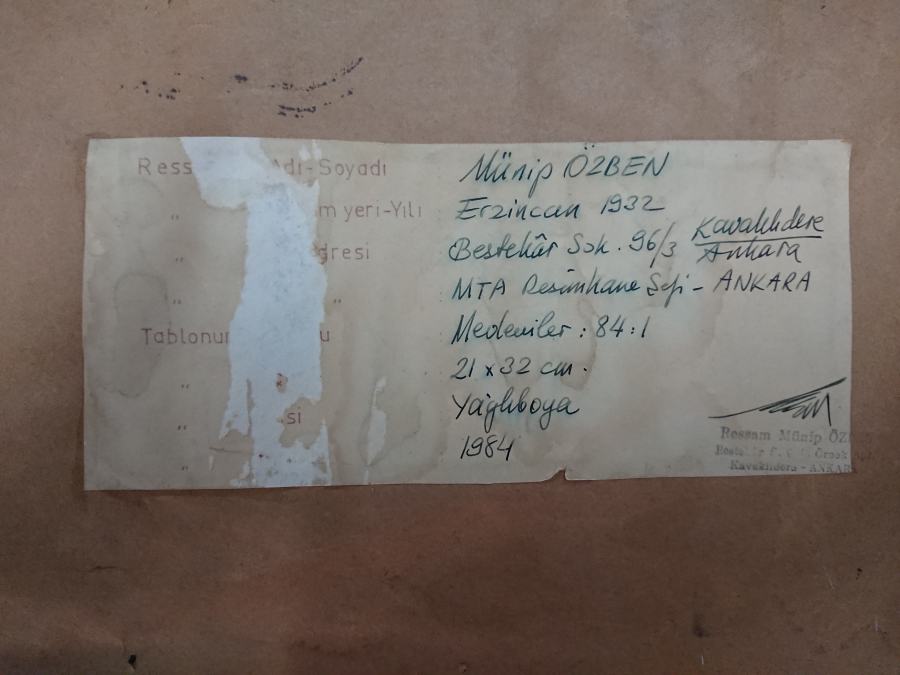 Ress Adı-Soyadı Münip ÖZBEN
„ m yeri-Yılı Erzincan 1932
„ dresi Bestekâr Sok. 96/3 Kavaklıdere Ankara
„ „ MTA Resimhane Şefi - ANKARA
Tablonun u Medeniler : 84:1
„ 21 x 32 cm.
„ si Yağlıboya
„ 1984
Ressam Münip ÖZ
Kavaklıdere - ANKAR